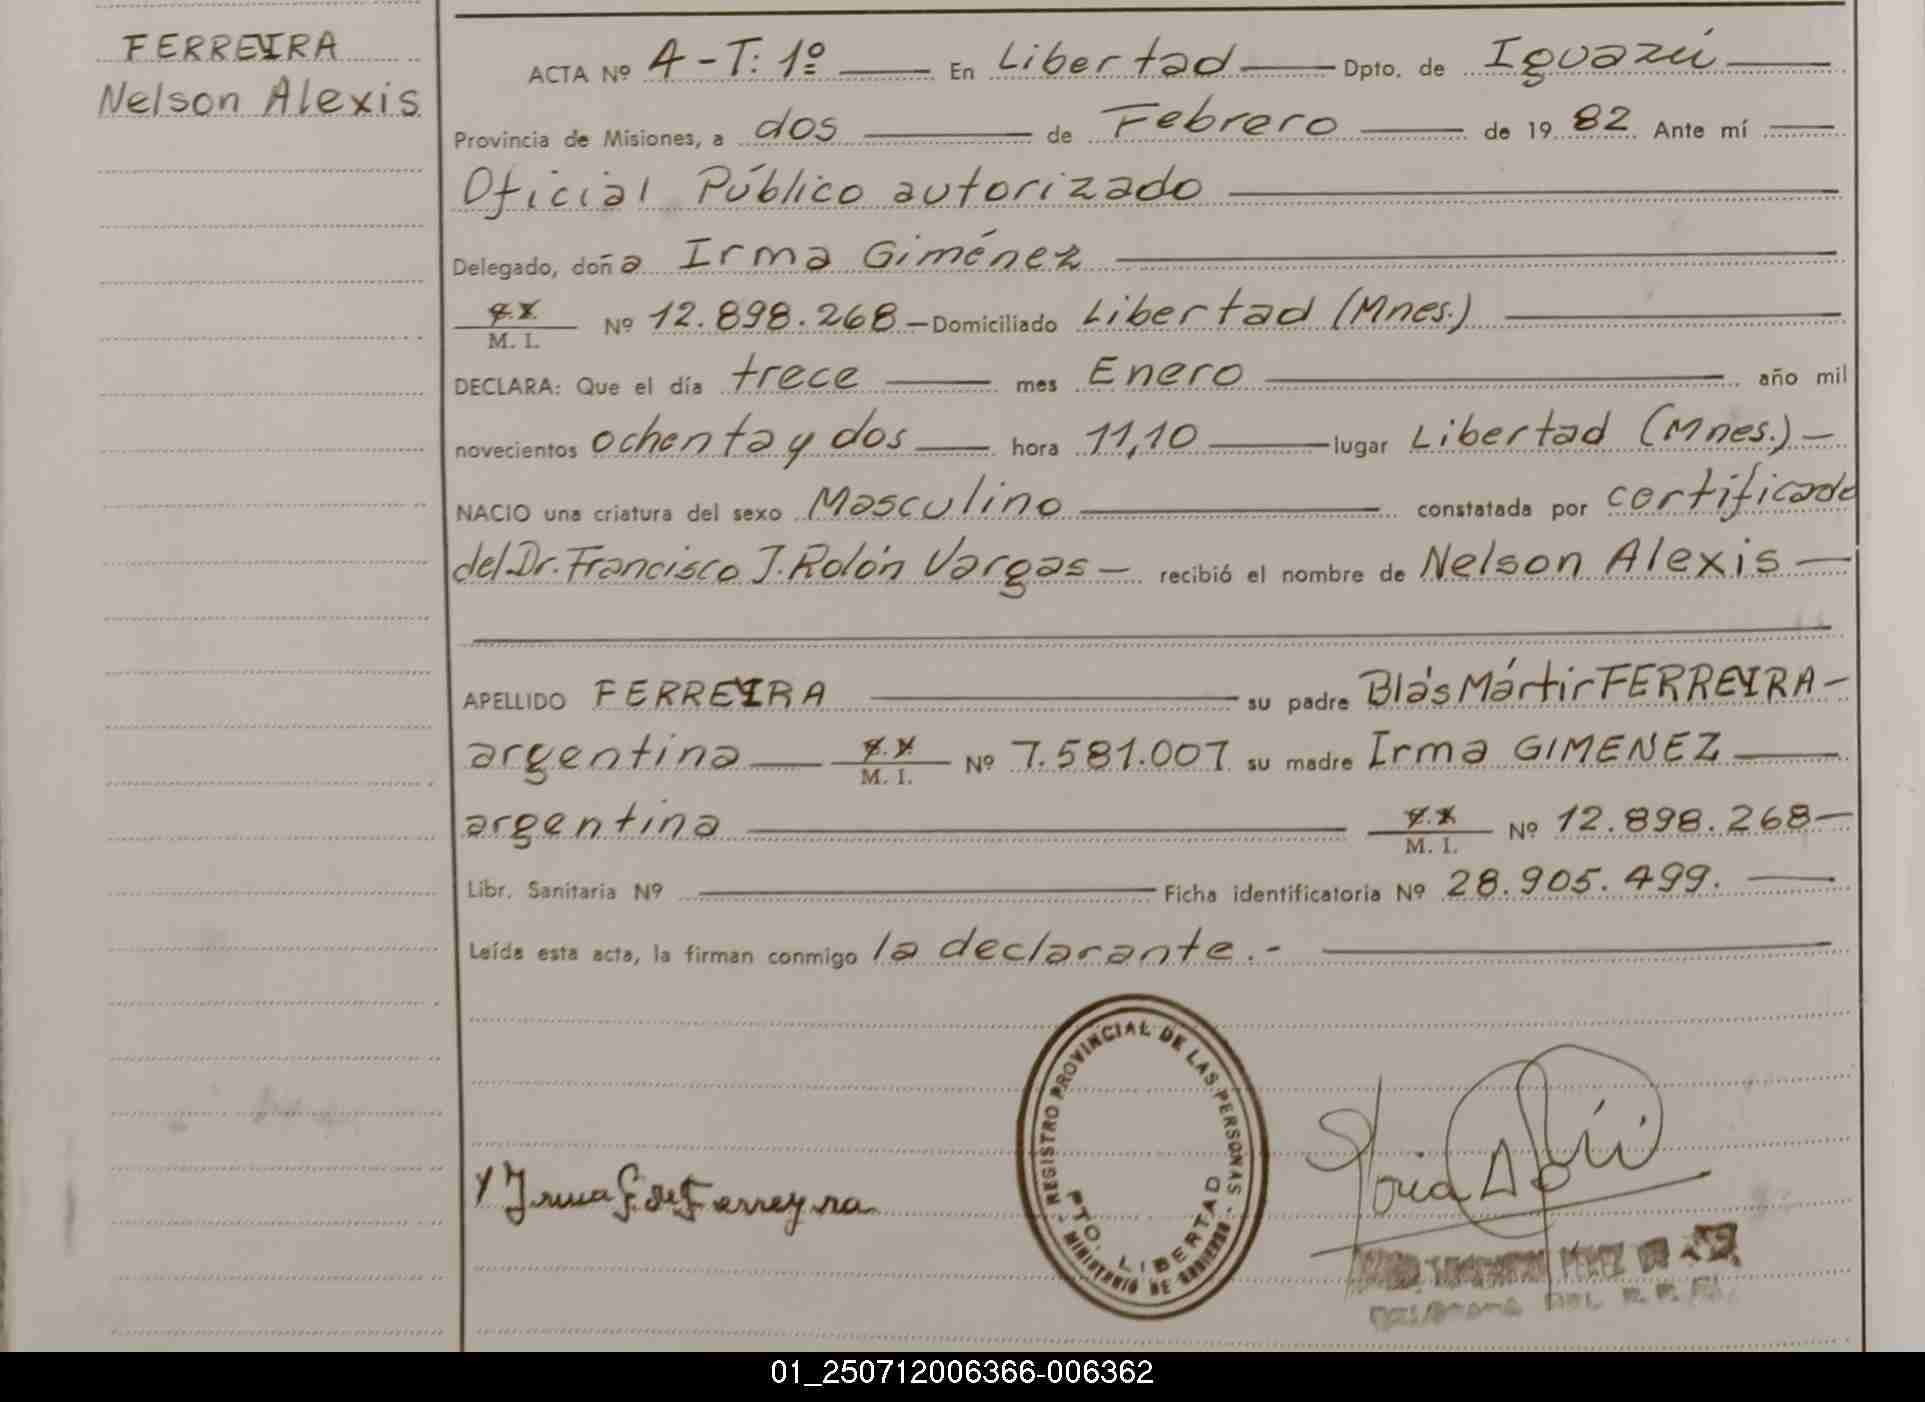 FERREIRA
Nelson Alexis
ACTA Nº 4 - T: 1º En Libertad Dpto. de Iguazú
Provincia de Misiones, a dos de Febrero de 1982 Ante mí
Oficial Público autorizado
Delegado, doña Irma Giménez
M. I. Nº 12.898.268 - Domiciliado Libertad (Mnes.)
DECLARA: Que el día trece mes Enero año mil
novecientos ochenta y dos hora 11,10 lugar Libertad (Mnes.) -
NACIO una criatura del sexo Masculino constatada por certificado
del Dr. Francisco J. Rolón Vargas - recibió el nombre de Nelson Alexis
APELLIDO FERREIRA su padre Blás Mártir FERREIRA -
argentina M. I. Nº 7.581.007 su madre Irma GIMENEZ
argentina M. I. Nº 12.898.268 -
Libr. Sanitaria Nº Ficha identificatoria Nº 28.905.499.
Leída esta acta, la firman conmigo la declarante. -
REGISTRO PROVINCIAL DE LAS PERSONAS
PTO. LIBERTAD
MINISTERIO DE GOBIERNO
Irma G. de Ferreyra
PEREZ DE
DEL R. P.
01_250712006366-006362